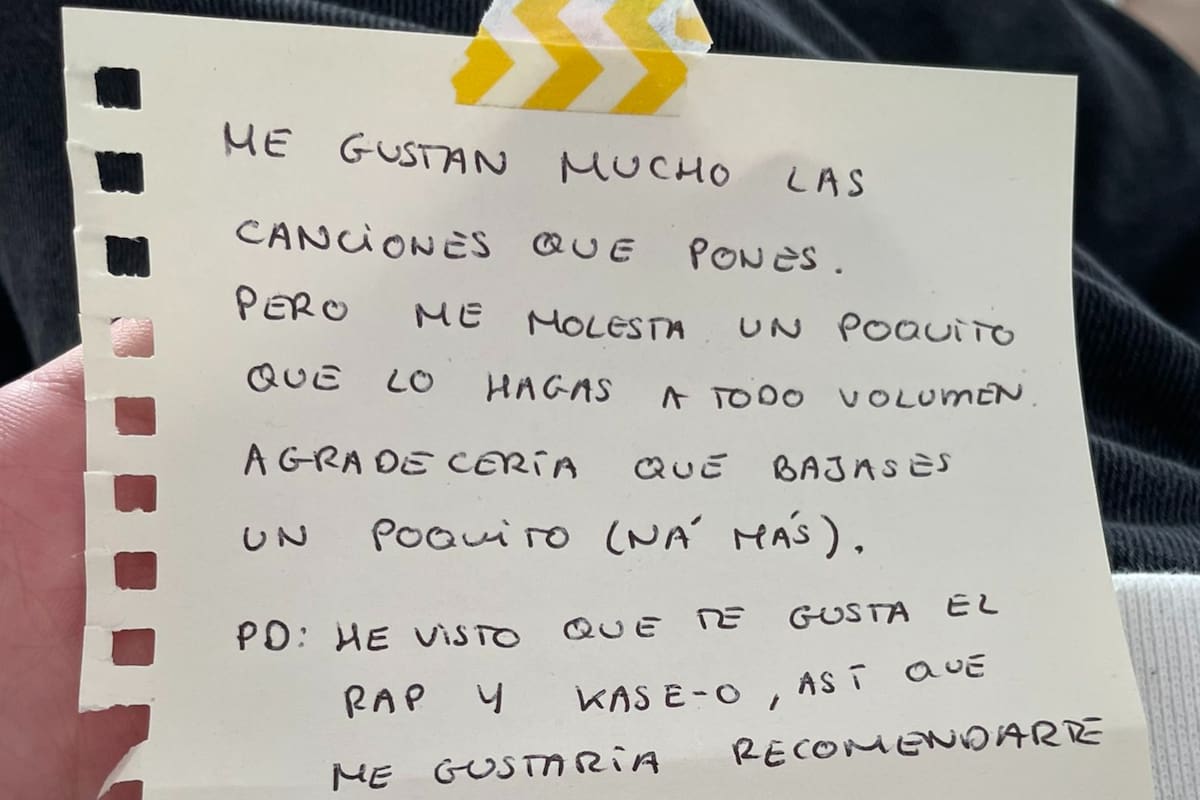 ME GUSTAN MUCHO LAS
CANCIONES QUE PONES.
PERO ME MOLESTA UN POQUITO
QUE LO HAGAS A TODO VOLUMEN.
AGRADECERÍA QUE BAJASES
UN POQUITO (NÁ MÁS).
PD: HE VISTO QUE TE GUSTA EL
RAP Y KASE-O, ASÍ QUE
ME GUSTARÍA RECOMENDARTE